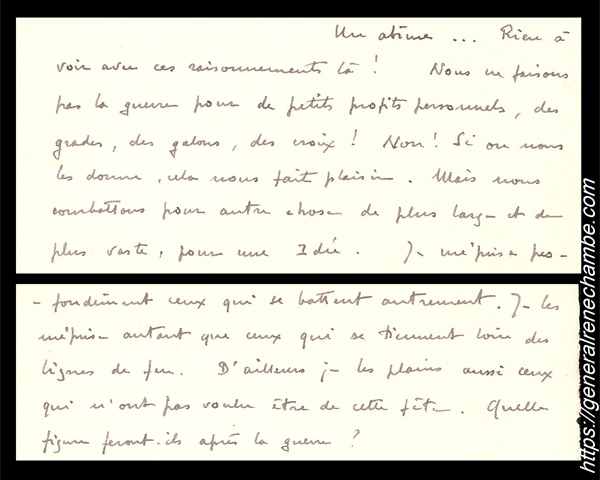 Un abîme ... Rien à
voir avec ces raisonnements là ! Nous ne faisons
pas la guerre pour de petits profits personnels, des
grades, des galons, des croix ! Non ! Si on nous
les donne, cela nous fait plaisir. Mais nous
combattons pour autre chose de plus large et de
plus vaste, pour une Idée. Je méprise pro-
- fondément ceux qui se battent autrement. Je les
méprise autant que ceux qui se tiennent loin des
lignes de feu. D'ailleurs je les plains aussi ceux
qui n'ont pas voulu être de cette fête. Quelle
figure feront-ils après la guerre ?
https://generalrenechambe.com